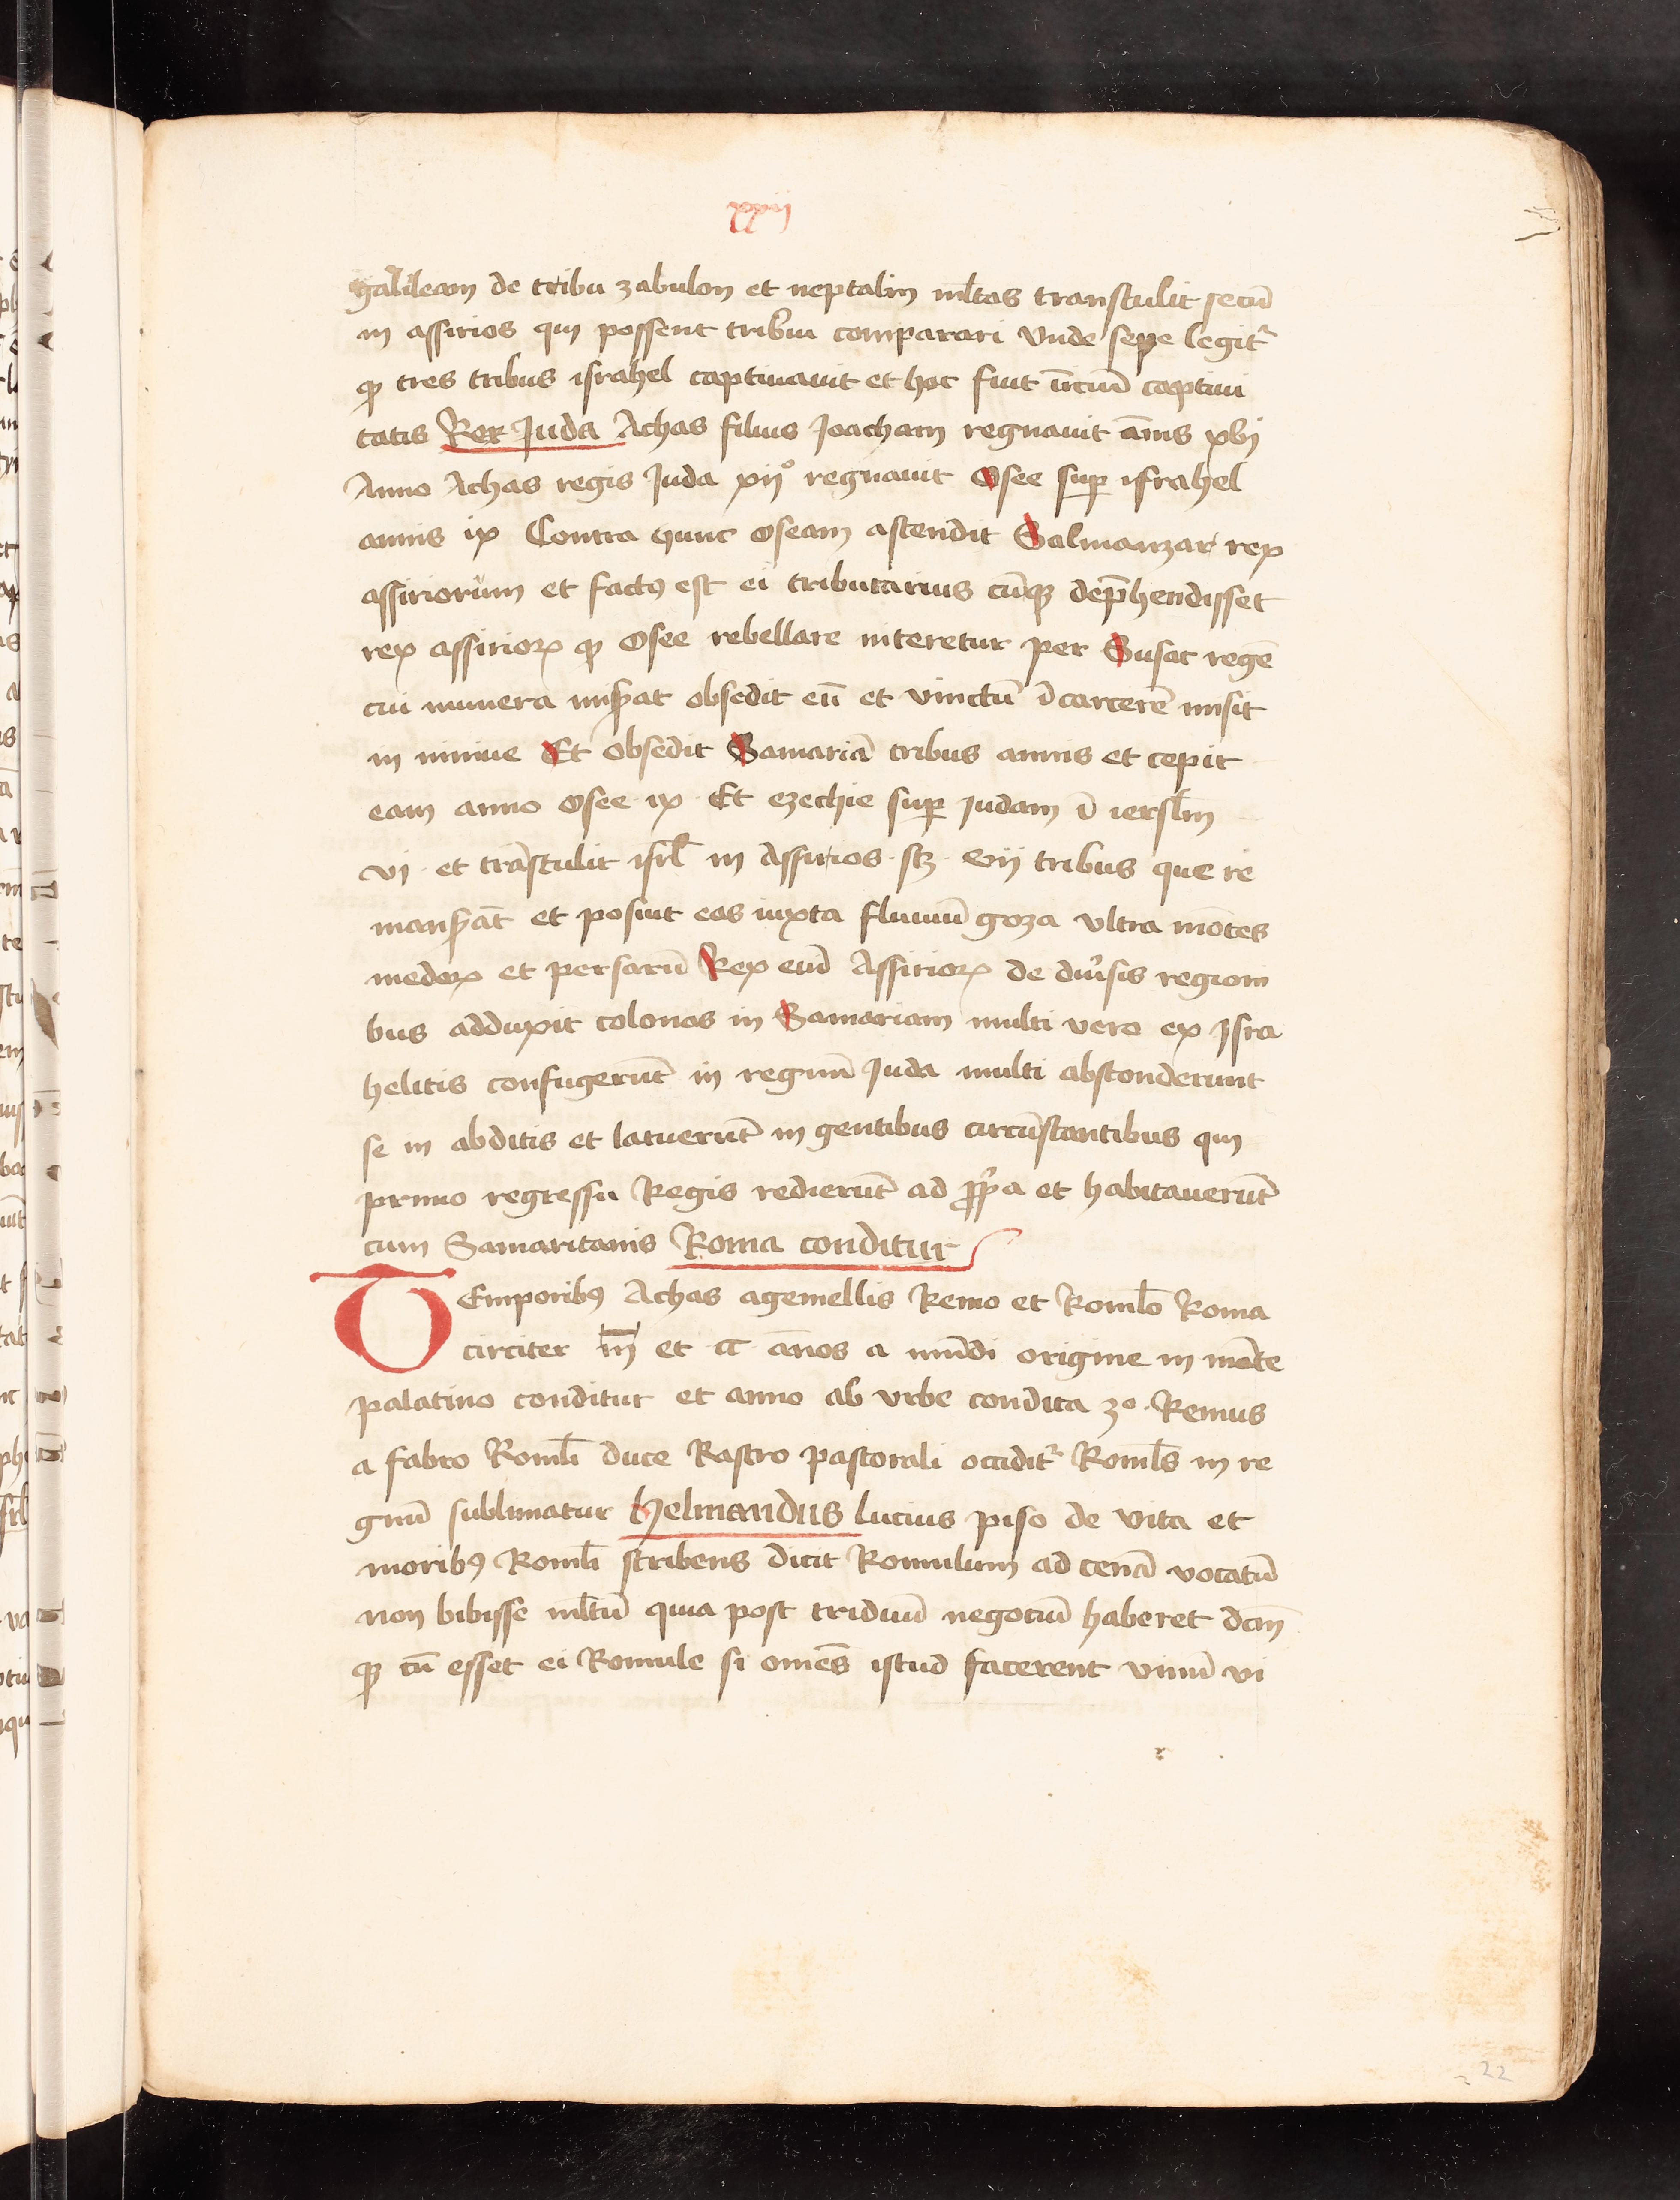 xxiij
galileam de tribu zabulon et neptalim ml̄tos transtulit secū
in assirios qui possent tribui comparari Vnde sepe legit᷑
ꝙ tres tribus israhel captiuauit et hoc fuit captiui
tatis Rex Juda Achas filius Joacham regnauit an̄is xvj
Anno Achas regis Juda xij° regnauit Osee suꝑ israhel
annis ix Contra hunc oseam ascendit Salmanzar rex
assiriorum et factꝰ est ei tributarius cūqꝫ dep̄hendisset
rex assirioꝝ ꝙ Osee rebellare niteretur per Susac regē
cui munera mis̓at obsedit eū et vinctū ī carcerē misit
in niniue Et obsedit Samariā tribus annis et cepit
eam anno Osee ix Et ezechie suꝑ Judam ī ierslm̄
vj · et trāstulit isrl̄ in Assirios · scꝫ · vij tribus que re
mans̓āt et posuit eas iuxta fluuiū goza vltra mōtes
medoꝝ et persarū Rex enī Assirioꝝ de diu̓sis regioni
bus adduxit colonos in Samariam multi vero ex Isra
helitis confugerūt in regnū Juda multi absconderunt
se in abditis et latuerūt in gentibus circūstantibus qui
primo regressu Regis redierūt ad ꝓp̓a et habitauerūt
cum Samaritanis Roma conditur
TEmporibꝰ Achas agemellis Remo et Roml̄o Roma
circiter et anos a mūdi origine in mōte
palatino conditur et anno ab vrbe condita 3° · Remus
a fabro Roml̄i duce Rastro pastorali occidit᷑ Roml̄s in re
gnū sublimatur Helmandus lucius piso de vita et
moribꝰ Roml̄i scribens dicit Romulum ad cenā vocatū
non bibisse ml̄tū quia post triduū negociū haberet dcm̄
ꝙ cū esset ei Romule si om̄es istud facerent vinū vi
22